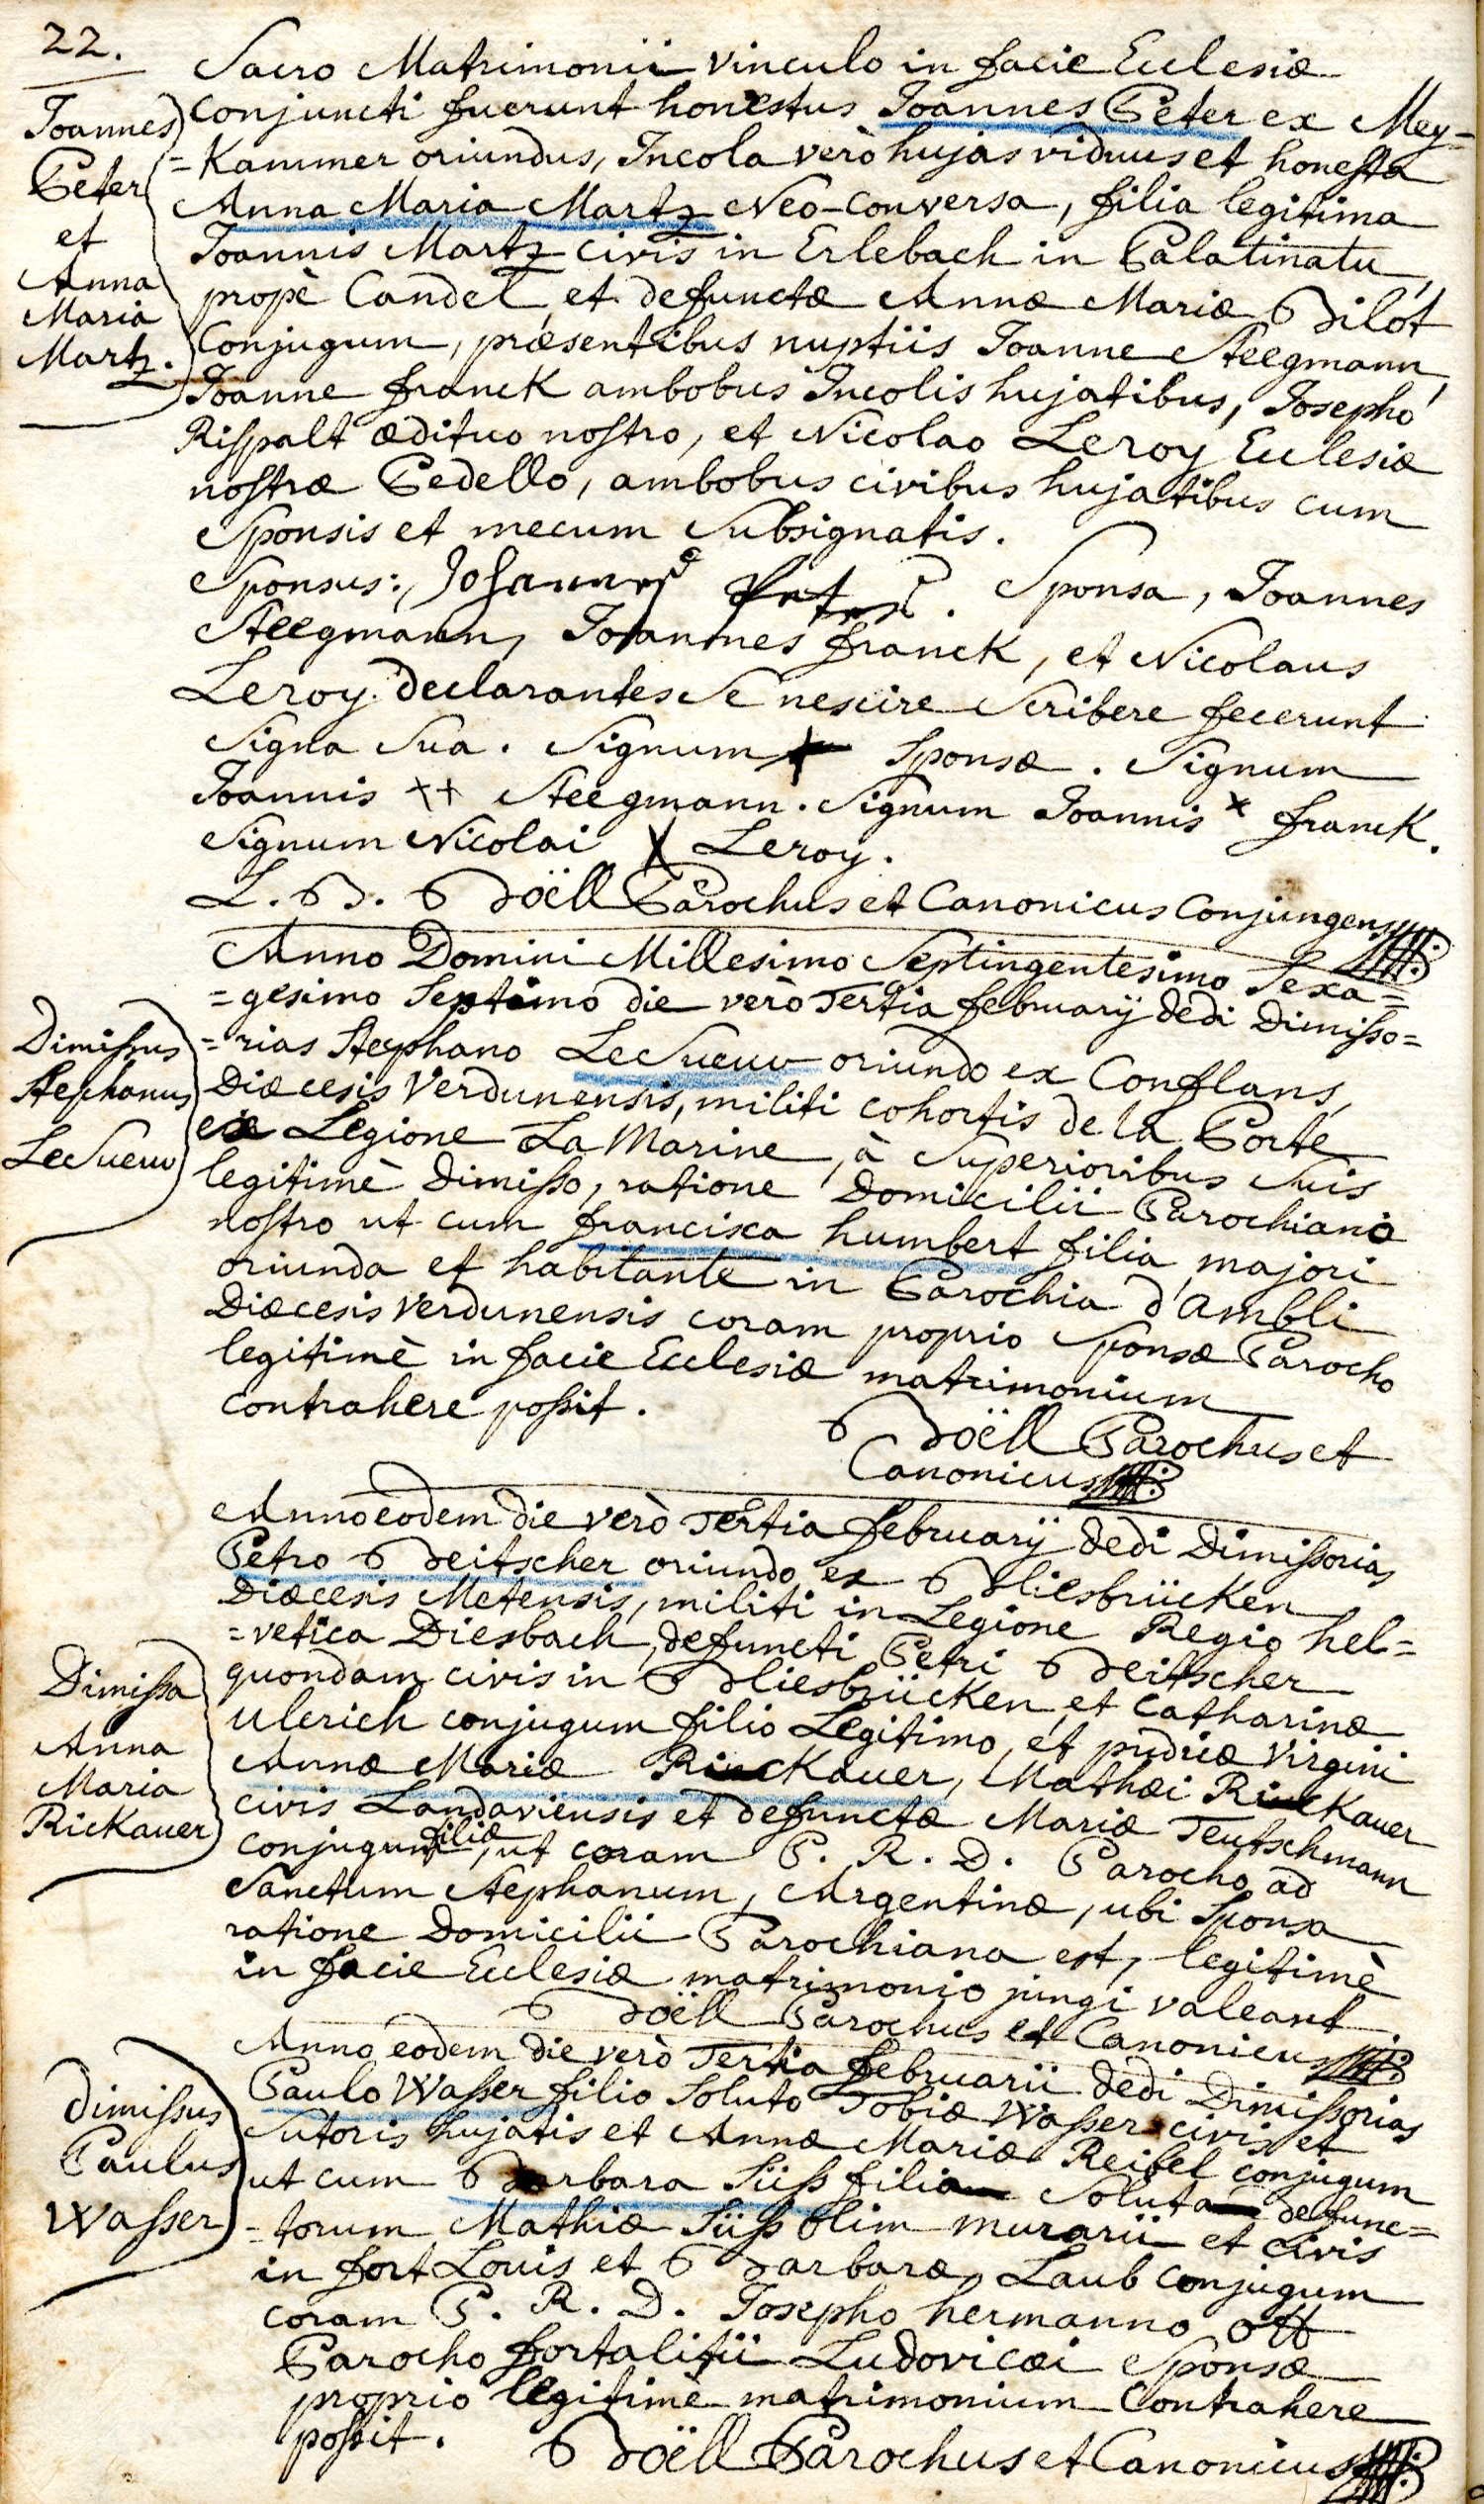 22.
Sacro Matrimonii vinculo in facie Ecclesiæ
Joannes
Peter
et
Anna
Maria
Martz.
conjuncti fuerunt honestus Joannes Peter ex Mey=
=Kammer oriundus, Incola verò hujas viduus et honesta
Anna Maria Martz Neo-conversa, filia legitima
Joannis Martz civis in Erlebach in Palatinatu,
propè Candel, et defunctæ Annæ Mariæ Bilot
Conjugum, præsentibus nuptiis Joanne Steegmann,
Joanne franck ambobus Incolis hujatibus, Josepho
Rispalt ædituo nostro, et Nicolao Leroy Ecclesiæ
nostræ Pedello, ambobus civibus hujatibus cum
Sponsis et mecum Subsignatis.
Sponsus: Johannes Peter. Sponsa, Joannes
Steegmann, Joannes franck, et Nicolaus
Leroy declarantes se nescire Scribere fecerunt
Signa Sua. Signum + Sponsæ. Signum
Joannis ++ Steegmann. Signum Joannis x franck.
Signum Nicolai X Leroy.
L. B. Boëll Parochus et Canonicus Conjungens
Anno Domini Millesimo Septingentesimo Sexa=
=gesimo Septimo die verò Tertia februarÿ dedi Dimisso=
Dimissus
Stephanus
LeSueur
=rias Stephano LeSueur oriundo ex Conflans,
Diœcesis Verdunensis, militi cohortis de la Porte
ex Legione La Marine, à Superioribus Suis
legitimè Dimisso, ratione Domicilii Parochiano
nostro ut cum francisca humbert filia majori
oriunda et habitante in Parochia d'Ambli
Diæcesis Verdunensis coram proprio Sponsæ Parocho
legitimè in facie Ecclesiæ matrimonium
contrahere possit.
Boëll Parochus et
Canonicus
Anno eodem die verò Tertia februarÿ dedi Dimissorias
Petro Beitscher oriundo ex Bliesbrücken
Diœcesis Metensis, militi in Legione Regio hel=
=vetica Diesbach, defuncti Petri Beitscher
Dimissa
Anna
Maria
Rickauer
quondam civis in Bliesbrücken, et Catharinæ
Ulerich conjugum filio Legitimo, et pudicæ Virgini
Annæ Mariæ Rickauer, Mathæi Rickauer
civis Landaviensis et defunctæ Mariæ Teutschmann
conjugum filiæ, ut coram P. R. D. Parocho ad
Sanctum Stephanum, Argentinæ, ubi Sponsa
ratione Domicilii Parochiana est, legitimè
in facie Ecclesiæ matrimonio jungi valeant
Boëll Parochus et Canonicus
Anno eodem die verò Tertia februarii dedi Dimissorias
dimissus
Paulus
Wasser
Paulo Wasser filio Soluto Tobiæ Wasser civis et
Sutoris hujatis et Annæ Mariæ Reibel conjugum
ut cum Barbara Süss filia Soluta defunc=
=torum Mathiæ Süss olim murarii et civis
in fort Louis et Barbaræ Laub conjugum
coram P. R. D. Josepho hermanno Ott
Parocho fortalitii Ludovicæi Sponsæ
proprio legitimè matrimonium Contrahere
possit. Boëll Parochus et Canonicus